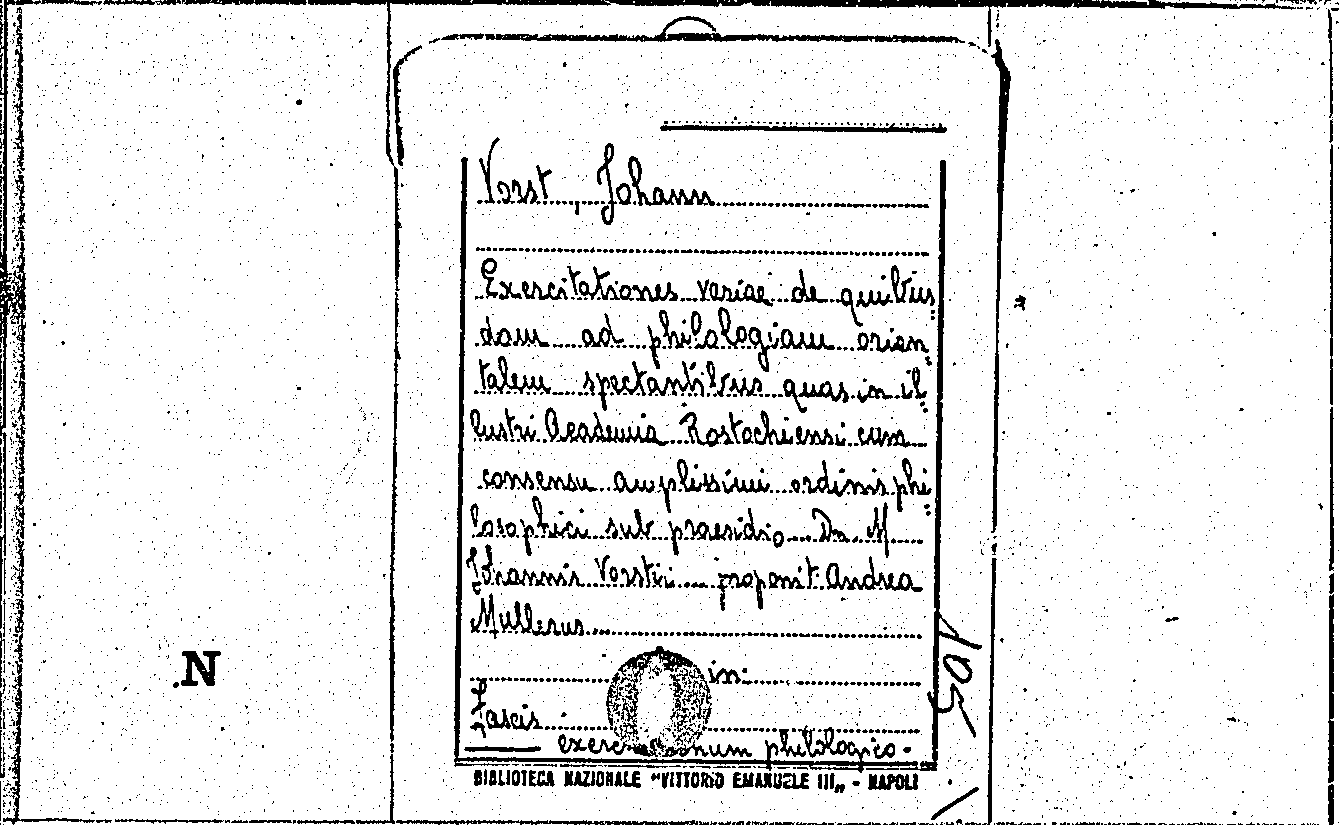 Vorst, Johann
Exercitationes variae de quibus
dam ad philologiam orien
talem spectantibus quas in il
lustri Academia Rostochiensi cum
consensu amplissimi ordinis phi
losophici sub praesidio Dn. M.
Johannis Vorstii proponit Andrea
Mullerus
in:
Fascis
philologico-
BIBLIOTECA NAZIONALE "VITTORIO EMANUELE III„ - NAPOLI
N